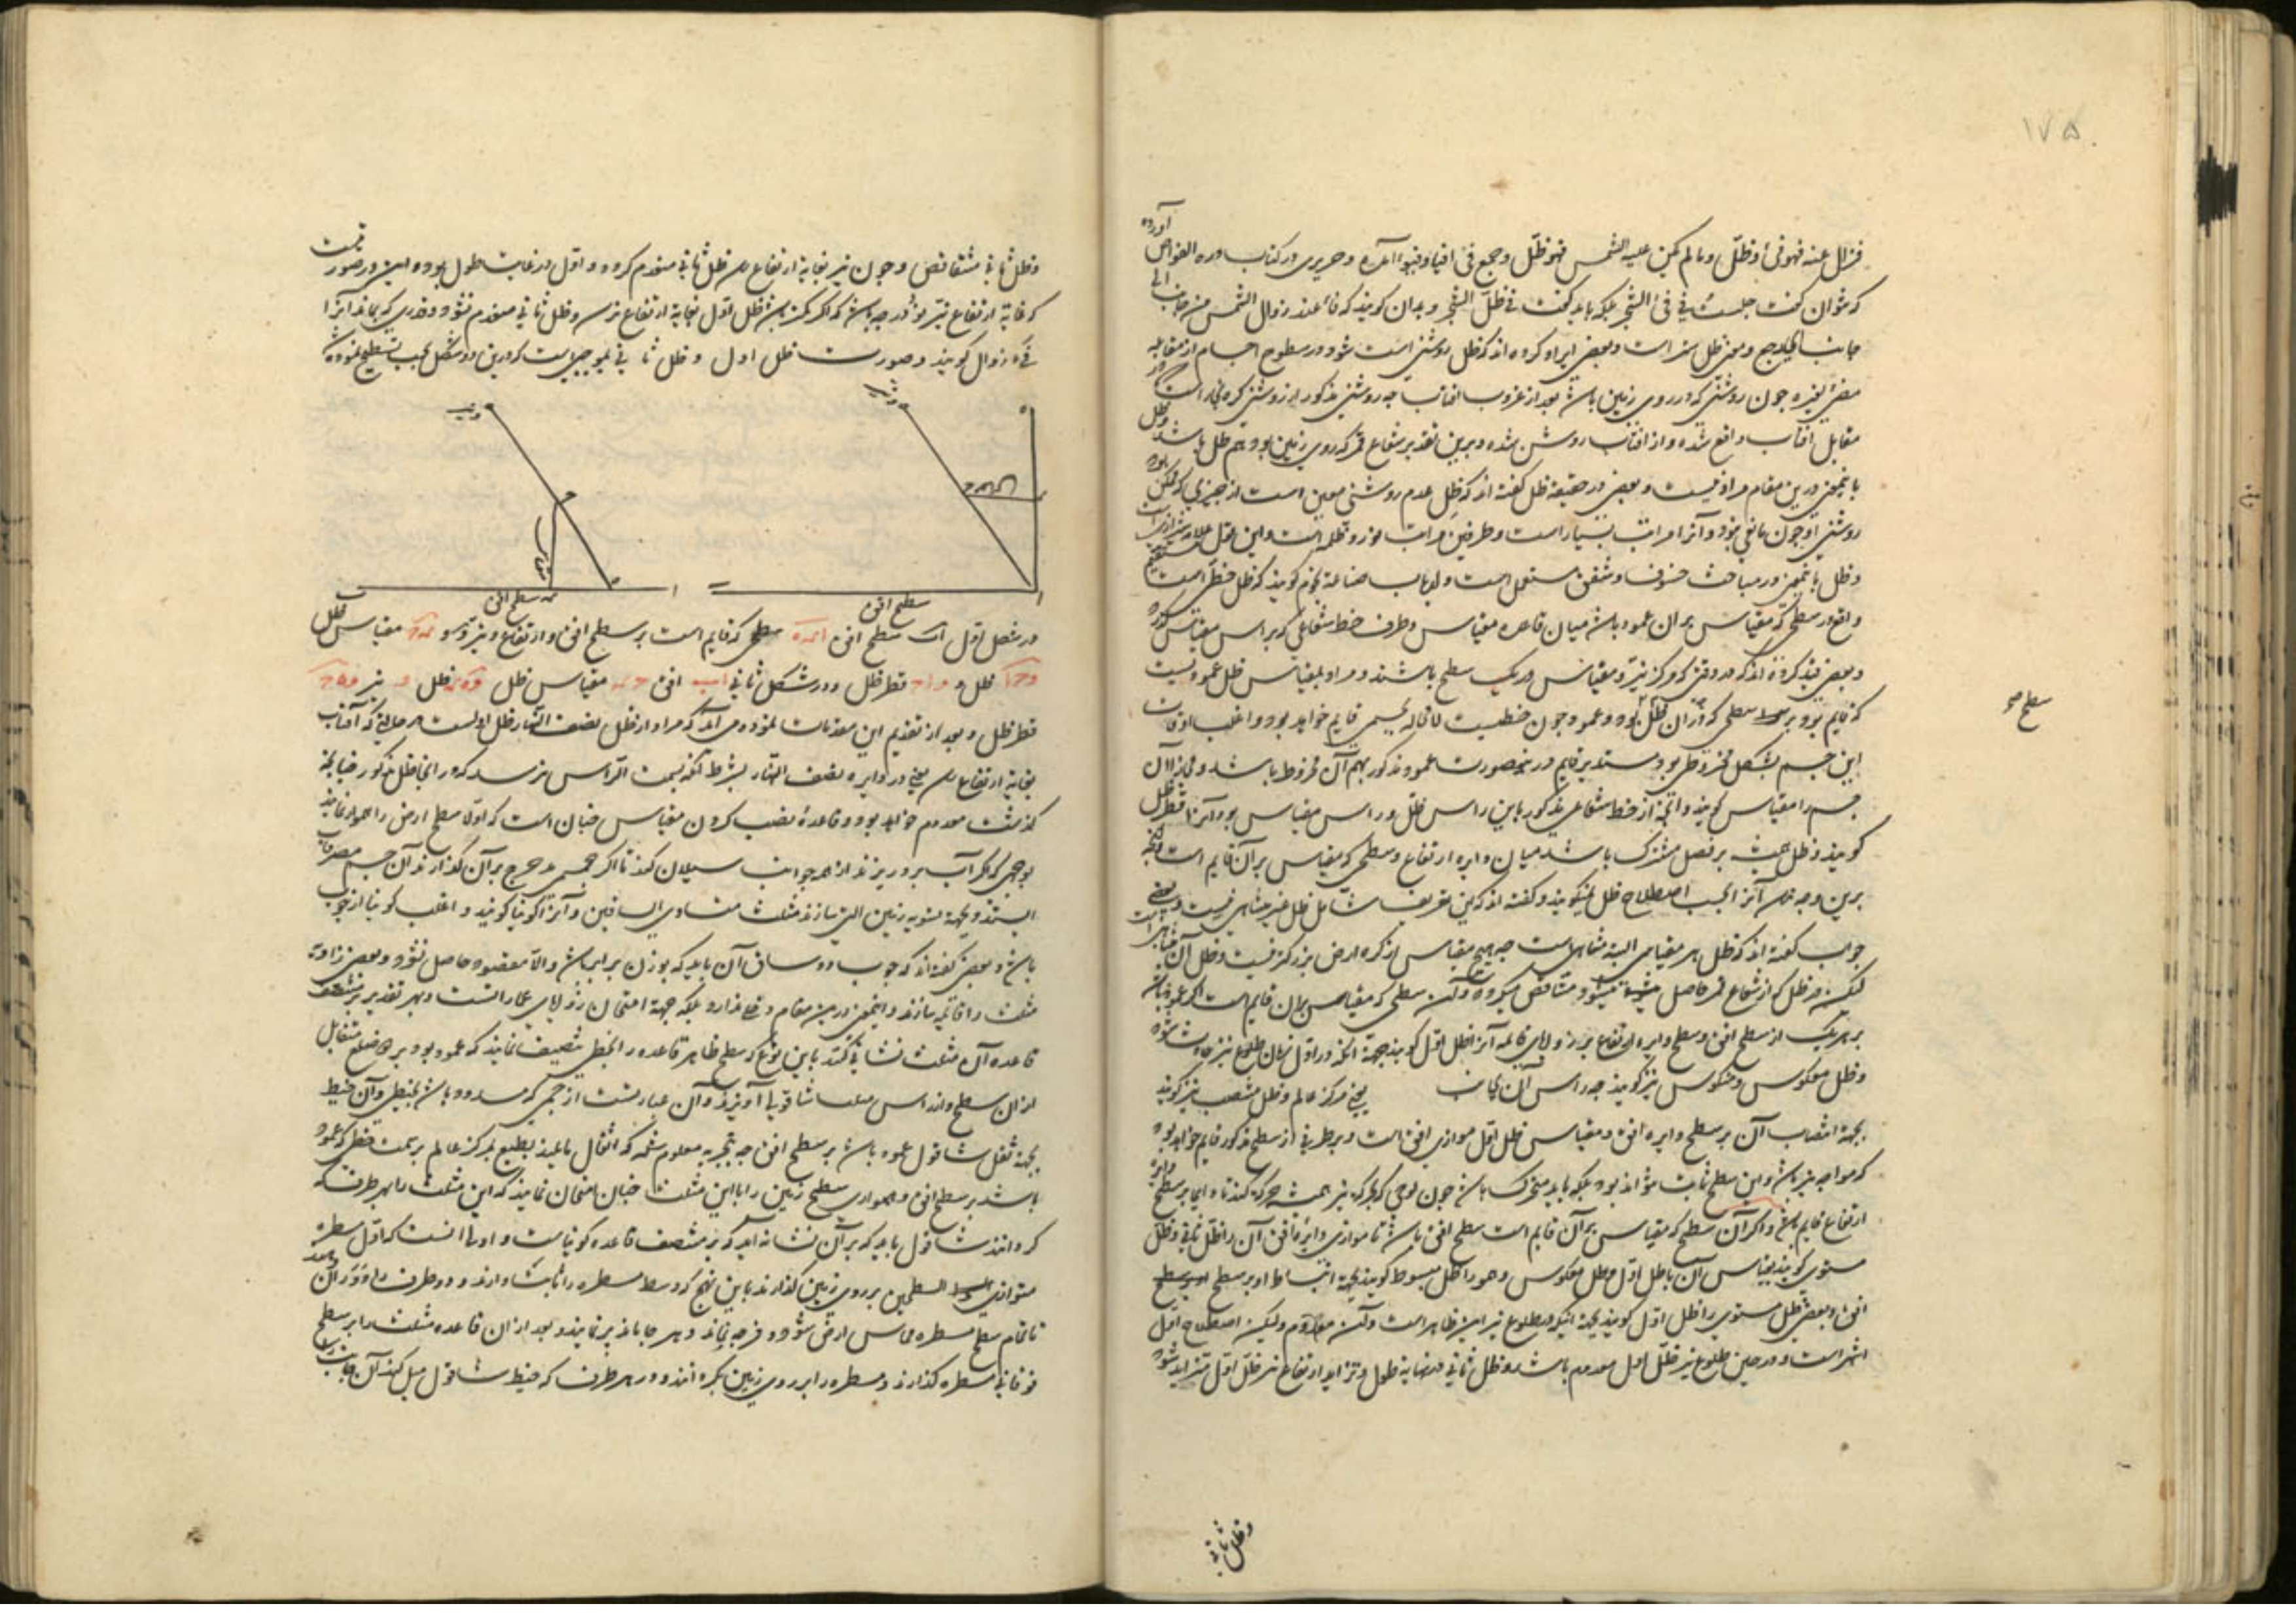 ١٧۵
آورده
فزال عنه فهو فیٔ و ظلّ و ما لم یکن علیه الشمس فهو ظلّ و جمع فیٔ افیاء و فیوء آمده و حریری در کتاب درة الغواص
که نتوان گفت جلست فی فیٔ الشجر بلکه باید گفت فی ظلّ الشجر و بدان گویند که فاء عند زوال الشمس من جانب الی
جانب ای رجع و معنی ظل ستر است و بعضی ایراد کرده اند که ظل روشنی است شود در سطوح اجسام از مقابله
مضیٔ لغیره چون روشنی که در روی زمین باشد بعد از غروب افتاب چه روشنی مذکور از روشنی کره بخار است
مقابل افتاب واقع شده و از افتاب روشن شده و برین تقدیر شعاع قمر که روی زمین بود هم ظل باشد و ظل
باین معنی درین مقام مراد نیست و بعضی در حقیقة ظل گفته اند که ظل عدم روشنی معین است از چیزی که ممکن بود
روشنی او چون مانعی نبود و آنرا مراتب بسیار است و طرفین مراتب نور و ظلمه است و این قول
و ظل باین معنی در مباحث خسوف و شفق مستعمل است و ارباب صناعة نجوم گویند که ظل خطی است مستقیم
واقع در سطحی که مقیاس بران عمود باشد میان قاعده مقیاس و طرف خط شعاعی که بر راس مقیاس گذرد
و بعضی قید کرده اند که در وقتی که مرکز نیّر و مقیاس در یک سطح باشند و مراد بمقیاس ظل عمودیست
که قایم بود بر سطحی که در آن ظل بود و عمود چون خطیست لا محاله بجسمی قایم خواهد بود و اغلب اوقات
سطح صح
این جسم بشکل مخروطی بود مستدیر قایم در نصورت عمود مذکور سهم آن مخروط باشد و مجازا آن
جسم را مقیاس گویند و آنچه از خط شعاعی مذکور باین راس ظل و راس مقیاس بود آنرا قطر ظل
گویند و ظل همیشه بر فصل مشترک باشد میان دایره ارتفاع و سطحی که مقیاس بر آن قایم است
برین وجه آنرا بحسب اصطلاح ظل نمیگویند و گفته اند که این تعریف شامل ظل غیر متناهی نیست و بعضی
جواب گفته اند که ظل هر مقیاسی البته متناهی است چه هیچ مقیاس از کره ارض بزرگتر نیست و ظل آن متناهی است
لیکن در ظل که از شعاع قمر حاصل میشود و متناقص میگردد و آن سطحی که مقیاس بران قایم است اگر عمود باشد
بر هر یک از سطح افق و سطح دایره ارتفاع بر زوایای قائمه آنرا ظل اول گویند بجهة آنکه در اول زمان طلوع نیر حادث شود
و ظل معکوس و منکوس نیز گویند چه راس آن بجانب یعنی مرکز عالم و ظل منتصب نیز گویند
بجهة انتصاب آن بر سطح دایره افق و مقیاس ظل اول موازی افق است و بر طرفی از سطح مذکور قایم خواهد بود
که مواجه نیر باشد و این سطح ثابت نتواند بود بلکه باید متحرک باشد چون لوحی که بحرکة نیر همیشه حرکة کند تا دایم بر سطح دایره
ارتفاع قایم باشد و اگر آن سطح که مقیاس بر آن قایم است سطح افق باشد تا موازی دایره افق آن را ظل ثانی و ظل
مستوی گویند بقیاس آن با ظل اول و ظل معکوس و هو را ظل مبسوط گویند بجهة انبساط او بر سطح
افق و بعضی ظل مستوی را ظل اول گویند بجهة آنکه در طلوع نیر این ظاهر است و آن معدوم ولیکن اصطلاح اول
اشهر است و در حین طلوع نیر ظلّ اول معدوم باشد و ظل ثانی در نهایة طول و تزاید ارتفاع نیر ظل اول متزاید شود
و ظل ثانی
و ظل ثانی متناقص و چون نیر بغایة ارتفاع رسد ظل ثانی منعدم گردد و اول در غایت طول بود و این در صورتیست
که غایة ارتفاع نیّر نود درجه باشد که اگر کمتر باشد ظل اول بغایة ارتفاع نرسد و ظل ثانی منعدم نشود و قدری که بماند آنرا
فیٔ زوال گویند و صورت ظل اول و ظل ثانی بموجبی است که درین دو شکل بحسب تسطیح نموده شد
سطح افق
مقیاس
سطح افق
در شکل اول ا ب سطح افق سطحی که قایم است بر سطح افق و ارتفاع و نیر و مقیاس ظل
ظل و قطر ظل و در شکل ثانی ا ب افق مقیاس ظل ظل نیر
قطر ظل و بعد از تقدیم این مقدمات نموده می آید که مراد از ظل نصف النهار ظل اولست در حالتی که آفتاب
بغایة ارتفاع رسد یعنی در دایره نصف النهار بشرط آنکه بسمت الراس نرسد که در انجا ظل مذکور چنانچه
گذشت معدوم خواهد بود و قاعده نصب کردن مقیاس چنان است که اولا سطح ارض را هموار نمایند
بوجهی که اگر آب برو ریزند از همه جوانب سیلان کند تا اگر جسمی مدحرج بر آن گذارند آن جسم
ایستد و بجهة تسویه زمین التی سازند مثلث متساوی الساقین و آنرا کونیا گویند و اغلب کونیا از چوب
باشد و بعضی گفته اند که چوب دو ساق آن باید که بوزن برابر باشد و الا مقصود حاصل نشود و بعضی زاویه
مثلث را قائمه سازند و اینمعنی درین مقام دخلی ندارد بلکه جهة امتحان زوایای عماراتست و بهر تقدیر بر منتصف
قاعده آن مثلث نشانی کنند باین نوع که سطح ظاهر قاعده را بخطی تنصیف نمایند که عمود بود بر دو ضلع متقابل
ازان سطح و از راس مثلث شاقولی آویزند و آن عبارتست از جسمی که مسدود باشد بخیطی و آن خیط
بجهة ثقل شاقول عمود باشد بر سطح افق چه بتجربه معلوم شده که اثقال مایلند بطبع بمرکز عالم بر سمت خطی که عمود
باشد بر سطح افق و همواری سطح زمین را با این مثلث چنان امتحان نمایند که این مثلث را بهر طرف که
گردانند شاقول باید که بر آن نشانه آید که بر منتصف قاعده کونیاست و اولی آنست که اول مسطره
متوازی السطحین بر روی زمین گذارند باین نهج که وسط مسطره را ثابت دارند و دو طرف را دور آن
تا تمام سطح مسطره مماس ارض شود و فرجه نماند و هر جا باند پر نمایند و بعد از آن قاعده مثلث را بر سطح
فوقانی مسطره گذارند و مسطره را بر روی زمین بگردانند و در هر طرف که خیط شاقول میل کند آن جانب را